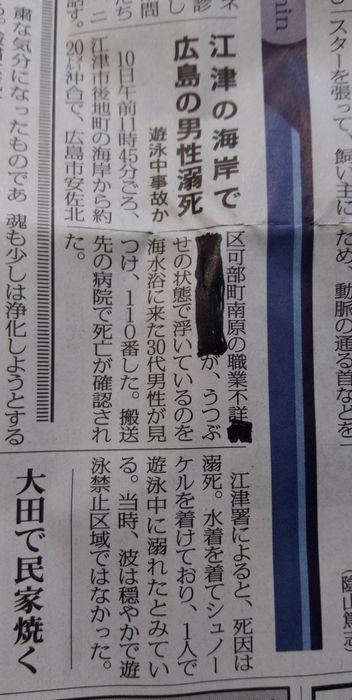 スターを張って、飼い主に
ため、動脈の通る首などを
(陰山篤志
江津の海岸で
広島の男性溺死
遊泳中事故か
10日午前11時45分ごろ、
江津市後地町の海岸から約
20㍍沖合で、広島市安佐北
区可部町南原の職業不詳
が、うつぶ
せの状態で浮いているのを
海水浴に来た30代男性が見
つけ、110番した。搬送
先の病院で死亡が確認され
た。
江津署によると、死因は
溺死。水着を着てシュノー
ケルを着けており、1人で
遊泳中に溺れたとみてい
る。当時、波は穏やかで遊
泳禁止区域ではなかった。
大田で民家焼く
粛な気分になったものであ
魂も少しは浄化しようとする